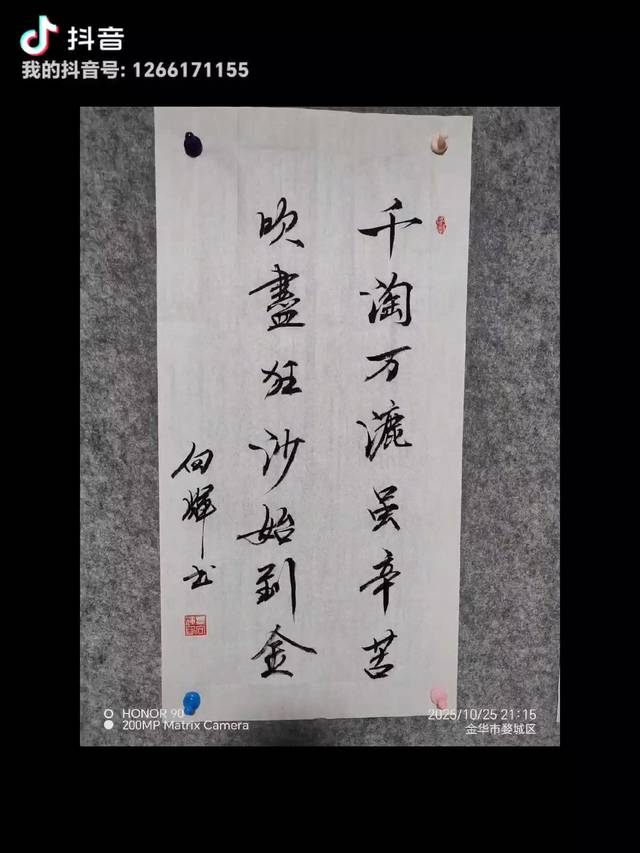 抖音
我的抖音号: 1266171155
千淘万漉虽辛苦
吹盡狂沙始到金
向輝书
HONOR 90
200MP Matrix Camera
2025/10/25 21:15
金华市婺城区